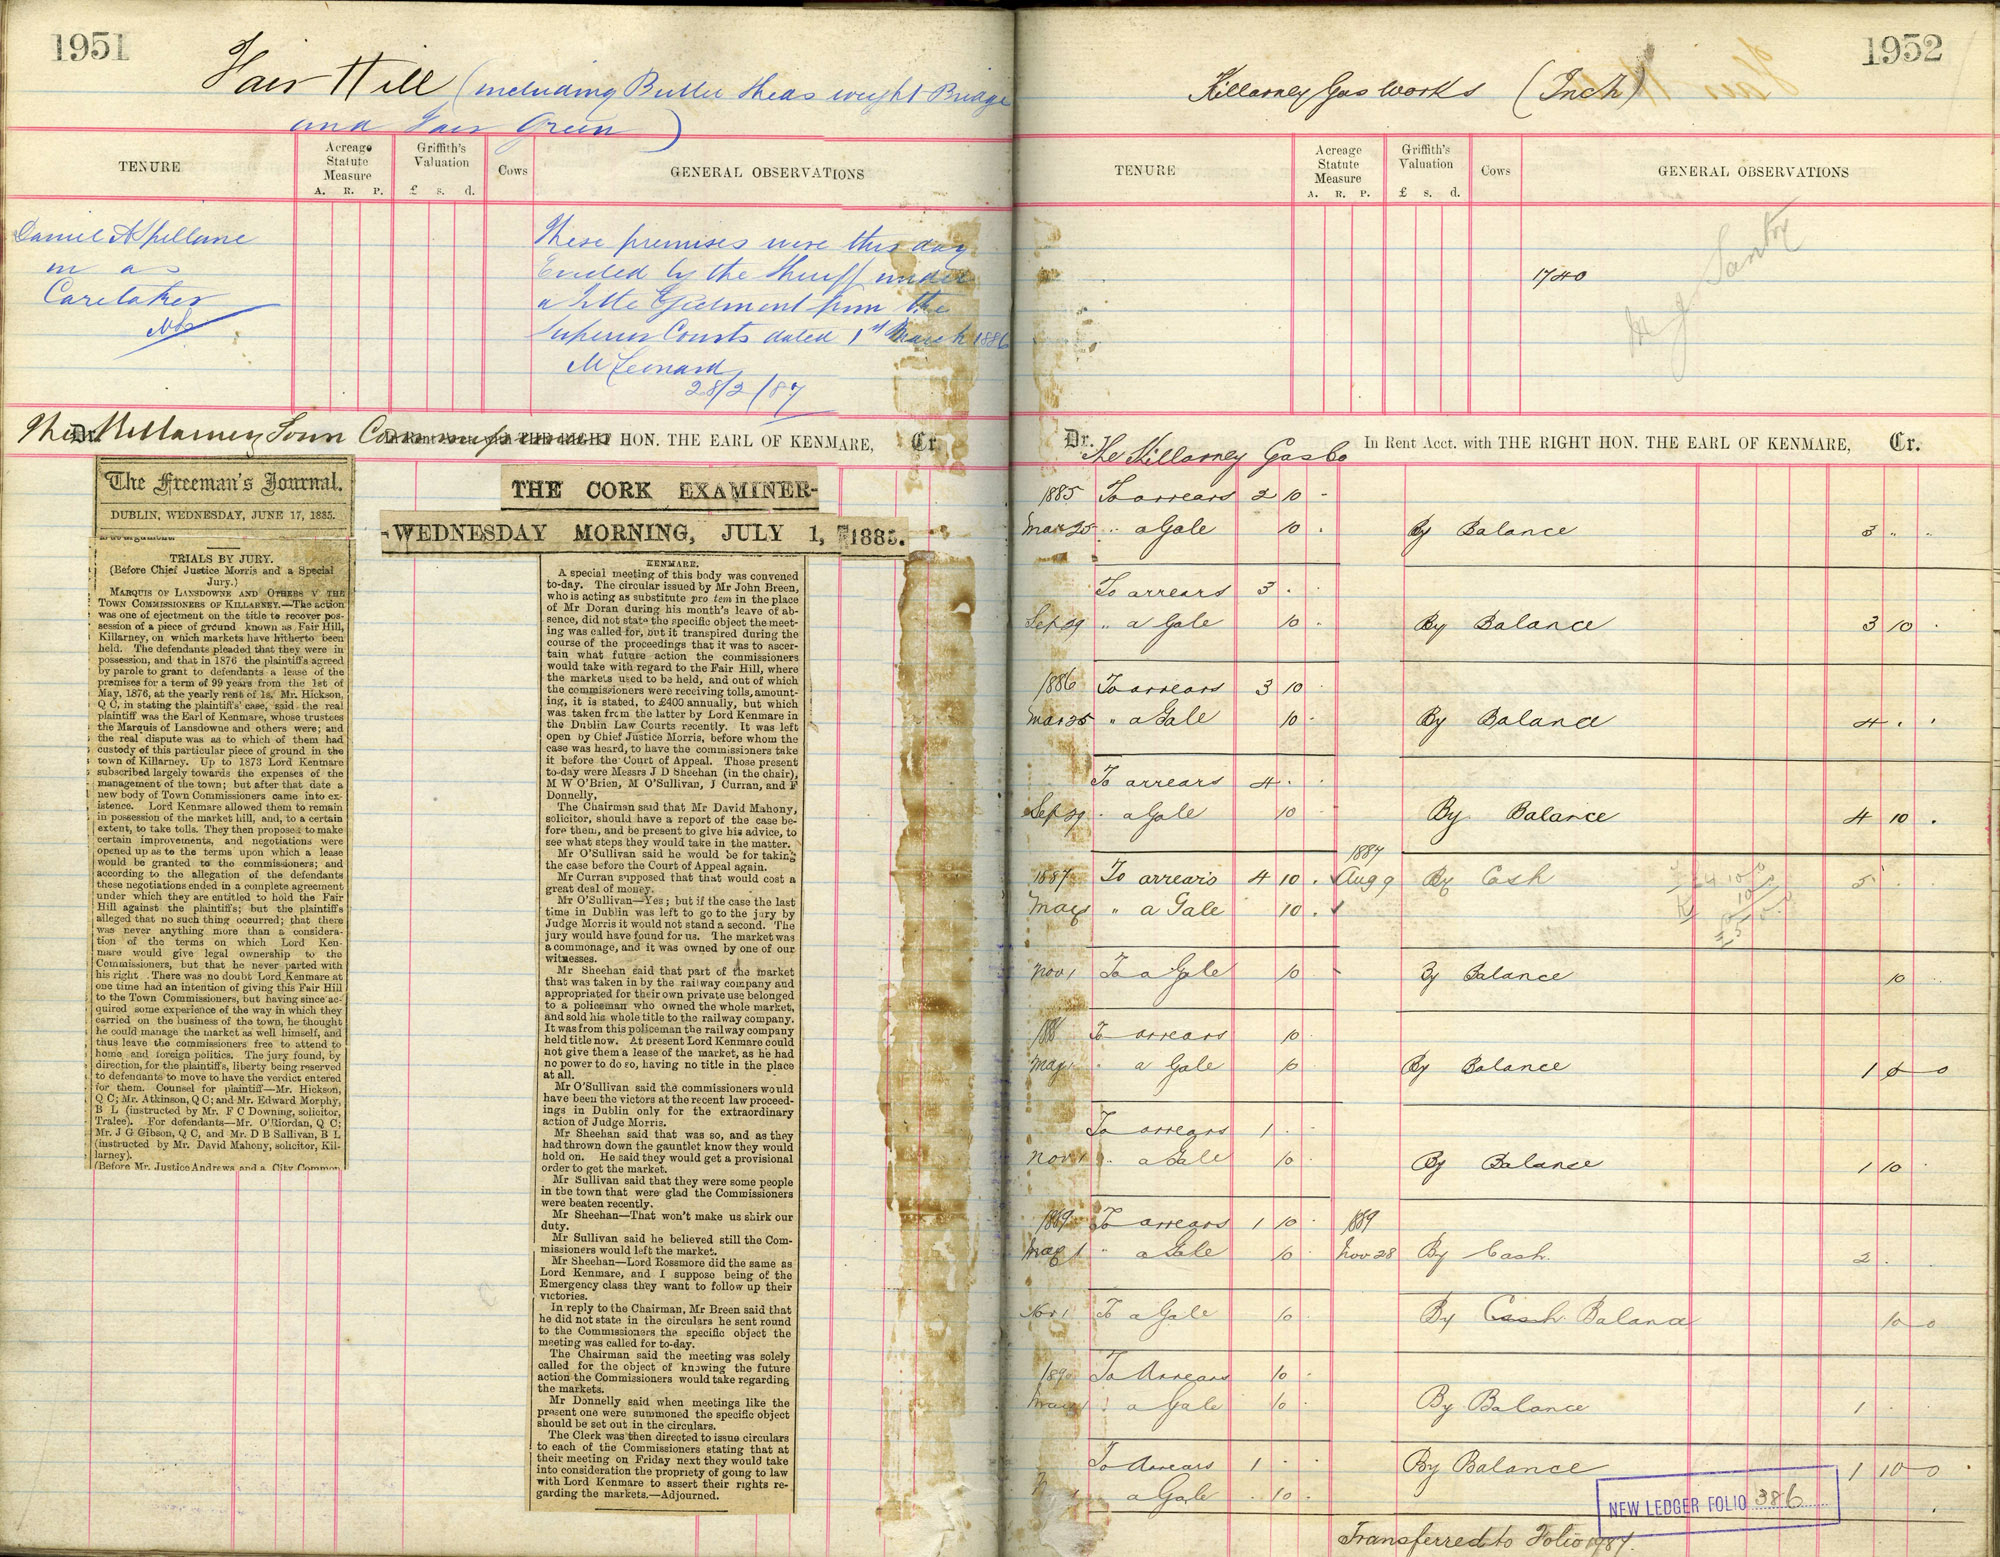 1951
Fair Hill (including Butter Sheds weigh Bridge
and Fair Green)
TENURE
Acreage
Statute
Measure
A. R. P.
Griffith's
Valuation
£ s. d.
Cows
GENERAL OBSERVATIONS
Daniel
in as
Caretaker
These premises were this day
Evicted by the Sheriff under
a Title Ejectment from the
Superior Courts dated 1st March 1886
M Leonard
28/2/87
Dr. The Killarney Town Commrs In Rent Acct. with THE RIGHT HON. THE EARL OF KENMARE, Cr.
The Freeman's Journal.
DUBLIN, WEDNESDAY, JUNE 17, 1885.
TRIALS BY JURY.
(Before Chief Justice Morris and a Special
Jury.)
MARQUIS OF LANSDOWNE AND OTHERS V. THE
TOWN COMMISSIONERS OF KILLARNEY.—The action
was one of ejectment on the title to recover pos-
session of a piece of ground known as Fair Hill,
Killarney, on which markets have hitherto been
held. The defendants pleaded that they were in
possession, and that in 1876 the plaintiffs agreed
by parole to grant to defendants a lease of the
premises for a term of 99 years from the 1st of
May, 1876, at the yearly rent of 1s. Mr. Hickson,
Q C, in stating the plaintiffs' case, said the real
plaintiff was the Earl of Kenmare, whose trustees
the Marquis of Lansdowne and others were; and
the real dispute was as to which of them had
custody of this particular piece of ground in the
town of Killarney. Up to 1873 Lord Kenmare
subscribed largely towards the expenses of the
management of the town; but after that date a
new body of Town Commissioners came into ex-
istence. Lord Kenmare allowed them to remain
in possession of the market hill, and, to a certain
extent, to take tolls. They then proposed to make
certain improvements, and negotiations were
opened up as to the terms upon which a lease
would be granted to the commissioners; and
according to the allegation of the defendants
these negotiations ended in a complete agreement
under which they are entitled to hold the Fair
Hill against the plaintiffs; but the plaintiffs
alleged that no such thing occurred; that there
was never anything more than a considera-
tion of the terms on which Lord Ken-
mare would give legal ownership to the
Commissioners, but that he never parted with
his right. There was no doubt Lord Kenmare at
one time had an intention of giving this Fair Hill
to the Town Commissioners, but having since ac-
quired some experience of the way in which they
carried on the business of the town, he thought
he could manage the market as well himself, and
thus leave the commissioners free to attend to
home and foreign politics. The jury found, by
direction, for the plaintiffs, liberty being reserved
to defendants to move to have the verdict entered
for them. Counsel for plaintiff—Mr. Hickson,
Q C; Mr. Atkinson, Q C; and Mr. Edward Morphy,
B L (instructed by Mr. F C Downing, solicitor,
Tralee). For defendants—Mr. O'Riordan, Q C;
Mr. J G Gibson, Q C, and Mr. D B Sullivan, B L
(instructed by Mr. David Mahony, solicitor, Kil-
larney).
(Before Mr. Justice Andrews and a City Common
THE CORK EXAMINER-
-WEDNESDAY MORNING, JULY 1, 1885.
KENMARE.
A special meeting of this body was convened
to-day. The circular issued by Mr John Breen,
who is acting as substitute pro tem in the place
of Mr Doran during his month's leave of ab-
sence, did not state the specific object the meet-
ing was called for, but it transpired during the
course of the proceedings that it was to ascer-
tain what future action the commissioners
would take with regard to the Fair Hill, where
the markets used to be held, and out of which
the commissioners were receiving tolls, amount-
ing, it is stated, to £400 annually, but which
was taken from the latter by Lord Kenmare in
the Dublin Law Courts recently. It was left
open by Chief Justice Morris, before whom the
case was heard, to have the commissioners take
it before the Court of Appeal. Those present
to-day were Messrs J D Sheehan (in the chair),
M W O'Brien, M O'Sullivan, J Curran, and F
Donnelly.
The Chairman said that Mr David Mahony,
solicitor, should have a report of the case be-
fore them, and be present to give his advice, to
see what steps they would take in the matter.
Mr O'Sullivan said he would be for taking
the case before the Court of Appeal again.
Mr Curran supposed that that would cost a
great deal of money.
Mr O'Sullivan—Yes; but if the case the last
time in Dublin was left to go to the jury by
Judge Morris it would not stand a second. The
jury would have found for us. The market was
a commonage, and it was owned by one of our
witnesses.
Mr Sheehan said that part of the market
that was taken in by the railway company and
appropriated for their own private use belonged
to a policeman who owned the whole market,
and sold his whole title to the railway company.
It was from this policeman the railway company
held title now. At present Lord Kenmare could
not give them a lease of the market, as he had
no power to do so, having no title in the place
at all.
Mr O'Sullivan said the commissioners would
have been the victors at the recent law proceed-
ings in Dublin only for the extraordinary
action of Judge Morris.
Mr Sheehan said that was so, and as they
had thrown down the gauntlet know they would
hold on. He said they would get a provisional
order to get the market.
Mr Sullivan said that they were some people
in the town that were glad the Commissioners
were beaten recently.
Mr Sheehan—That won't make us shirk our
duty.
Mr Sullivan said he believed still the Com-
missioners would left the market.
Mr Sheehan—Lord Rossmore did the same as
Lord Kenmare, and I suppose being of the
Emergency class they want to follow up their
victories.
In reply to the Chairman, Mr Breen said that
he did not state in the circulars he sent round
to the Commissioners the specific object the
meeting was called for to-day.
The Chairman said the meeting was solely
called for the object of knowing the future
action the Commissioners would take regarding
the markets.
Mr Donnelly said when meetings like the
present one were summoned the specific object
should be set out in the circulars.
The Clerk was then directed to issue circulars
to each of the Commissioners stating that at
their meeting on Friday next they would take
into consideration the propriety of going to law
with Lord Kenmare to assert their rights re-
garding the markets.—Adjourned.
1952
Killarney Gas Works (Inch)
TENURE
Acreage
Statute
Measure
A. R. P.
Griffith's
Valuation
£ s. d.
Cows
GENERAL OBSERVATIONS
1740
Dr. The Killarney Gas Co In Rent Acct. with THE RIGHT HON. THE EARL OF KENMARE, Cr.
1885 To arrears 2 10 -
Mar 25 " a Gale 10 . By Balance 3 " "
To arrears 3 .
Sep 29 " a Gale 10 . By Balance 3 10 .
1886 To arrears 3 10
Mar 25 " a Gale 10 . By Balance 4 . .
To arrears 4 .
Sep 29 " a Gale 10 By Balance 4 10 .
1887
1887 To arrears 4 10 . Aug 9 By Cash 5 .
May 1 " a Gale 10 .
Nov 1 To a Gale 10 By Balance 10
1888 To arrears 10
May 1 " a Gale 10 By Balance 1 0 0
To arrears 1 .
Nov 1 " a Gale 10 By Balance 1 10
1889 To arrears 1 10 1889
May 1 " a Gale 10 Nov 28 By Cash 2 .
Nov 1 To a Gale 10 By Cash Balance 10 0
1890 To Arrears 10
May 1 " a Gale 10 By Balance 1 .
To Arrears 1 . By Balance 1 10 0
a Gale 10
NEW LEDGER FOLIO 386
Transferred to Folio 1987.